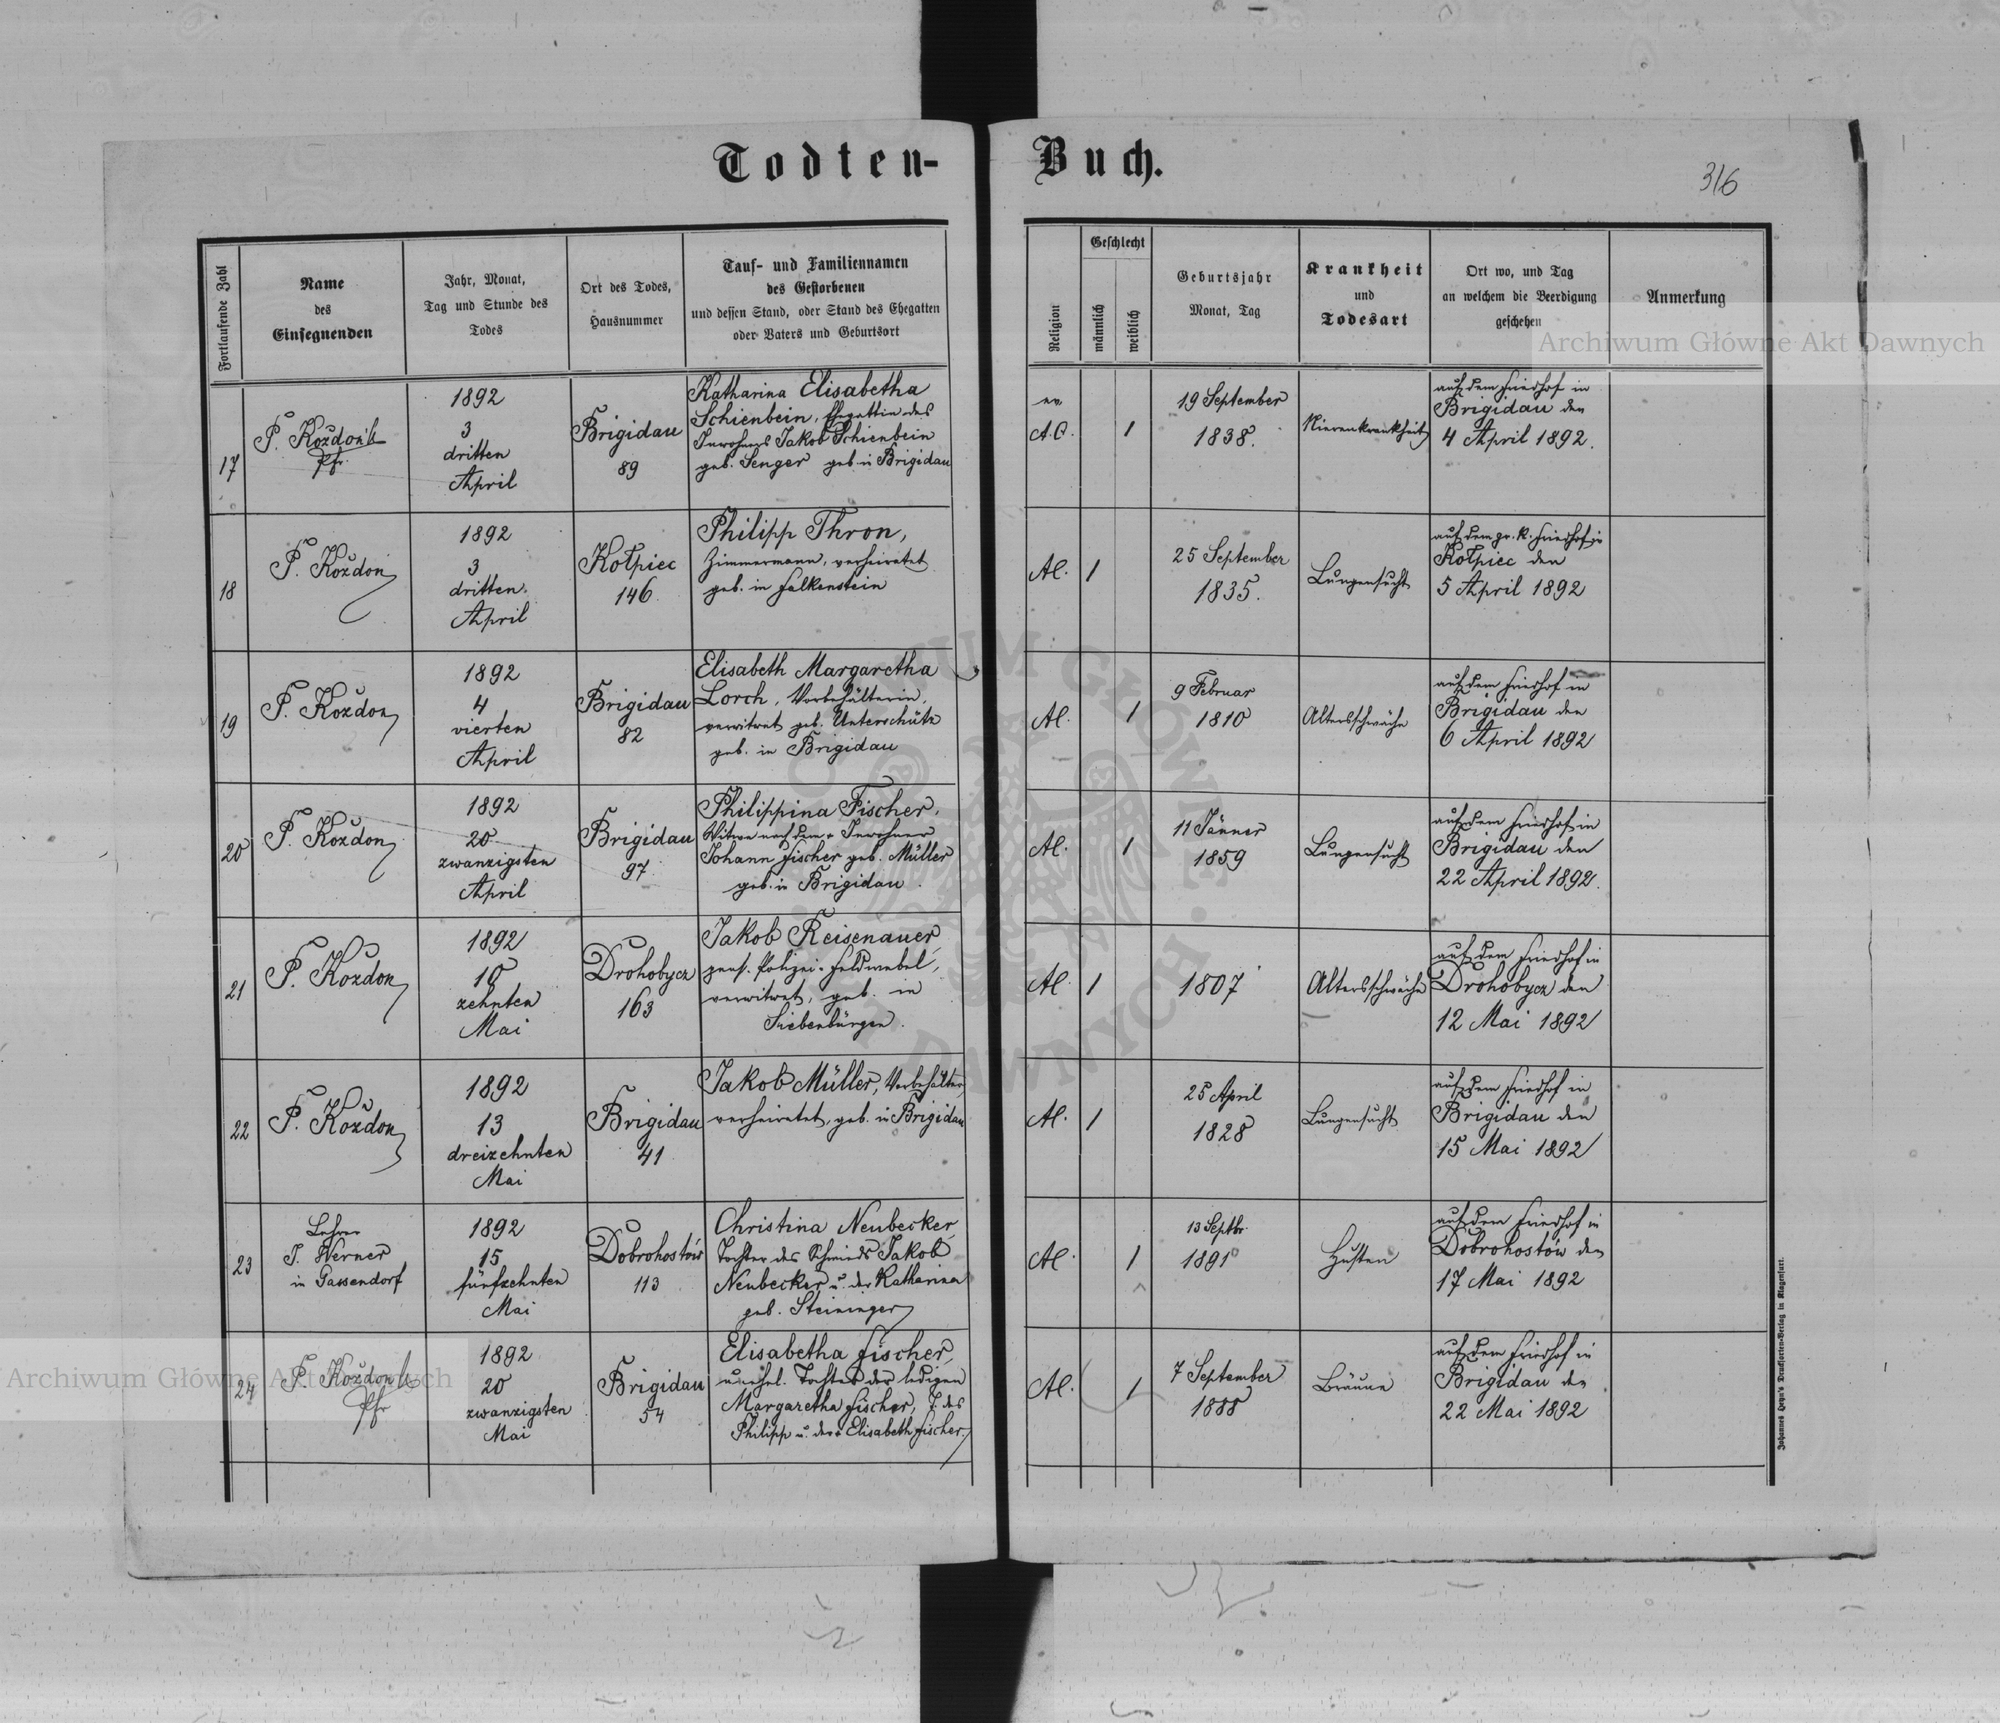 Todten-Buch.
316
Fortlaufende Zahl
Name
des
Einsegnenden
Jahr, Monat,
Tag und Stunde des
Todes
Ort des Todes,
Hausnummer
Tauf- und Familiennamen
des Gestorbenen
und dessen Stand, oder Stand des Ehegatten
oder Vaters und Geburtsort
Religion
Geschlecht
männlich
weiblich
Geburtsjahr
Monat, Tag
Krankheit
und
Todesart
Ort wo, und Tag
an welchem die Beerdigung
geschehen
Anmerkung
17
P. Koždon
Pfr.
1892
3
dritten
April
Brigidau
89
Katharina Elisabetha
Schienbein, Ehegattin des
Inwohners Jakob Schienbein
geb. Senger geb. in Brigidau
ev.
A.C.
1
19 September
1838.
Nierenkrankheit
auf dem Friedhof in
Brigidau den
4 April 1892.
18
P. Koždon
1892
3
dritten
April
Kołpiec
146
Philipp Thron,
Zimmermann, verheiratet
geb. in Falkenstein
Al.
1
25 September
1835.
Lungensucht
auf dem gr. k. Friedhof in
Kołpiec den
5 April 1892
19
P. Koždon
1892
4
vierten
April
Brigidau
82
Elisabeth Margaretha
Lorch, Vorbehälterin,
verwitwet geb. Unterschütz
geb. in Brigidau
Al.
1
9 Februar
1810
Altersschwäche
auf dem Friedhof in
Brigidau den
6 April 1892
20
P. Koždon
1892
20
zwanzigsten
April
Brigidau
97
Philippina Fischer,
Witwe nach dem + Inwohner
Johann Fischer geb. Müller
geb. in Brigidau
Al.
1
11 Jänner
1859
Lungensucht
auf dem Friedhof in
Brigidau den
22 April 1892.
21
P. Koždon
1892
10
zehnten
Mai
Drohobycz
163
Jakob Reisenauer,
pens. Polizei-Feldwebel,
verwitwet, geb. in
Siebenbürgen.
Al.
1
1807
Altersschwäche
auf dem Friedhof in
Drohobycz den
12 Mai 1892
22
P. Koždon
1892
13
dreizehnten
Mai
Brigidau
41
Jakob Müller, Vorbehälter,
verheiratet, geb. in Brigidau
Al.
1
25 April
1828
Lungensucht
auf dem Friedhof in
Brigidau den
15 Mai 1892
23
Lehrer
J. Werner
in Gassendorf
1892
15
fünfzehnten
Mai
Dobrohostów
113
Christina Neubecker,
Tochter des Schmieds Jakob
Neubecker u. der Katharina
geb. Steininger
Al.
1
13 Septbr.
1891
Husten
auf dem Friedhof in
Dobrohostów den
17 Mai 1892
24
P. Koždon
Pfr
1892
20
zwanzigsten
Mai
Brigidau
54
Elisabetha Fischer,
unehel. Tochter der ledigen
Margaretha Fischer, T. des
Philipp u. der Elisabeth Fischer.
Al.
1
7 September
1888
Bräune
auf dem Friedhof in
Brigidau den
22 Mai 1892
Johannes Heyn's Drucksorten-Verlag in Klagenfurt.
Archiwum Główne Akt Dawnych
Archiwum Główne Akt Dawnych